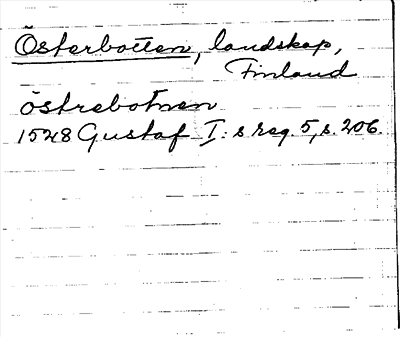 Österbotten, landskap,
Finland
östrebotnen
1528 Gustaf I:s reg. 5, s. 206.